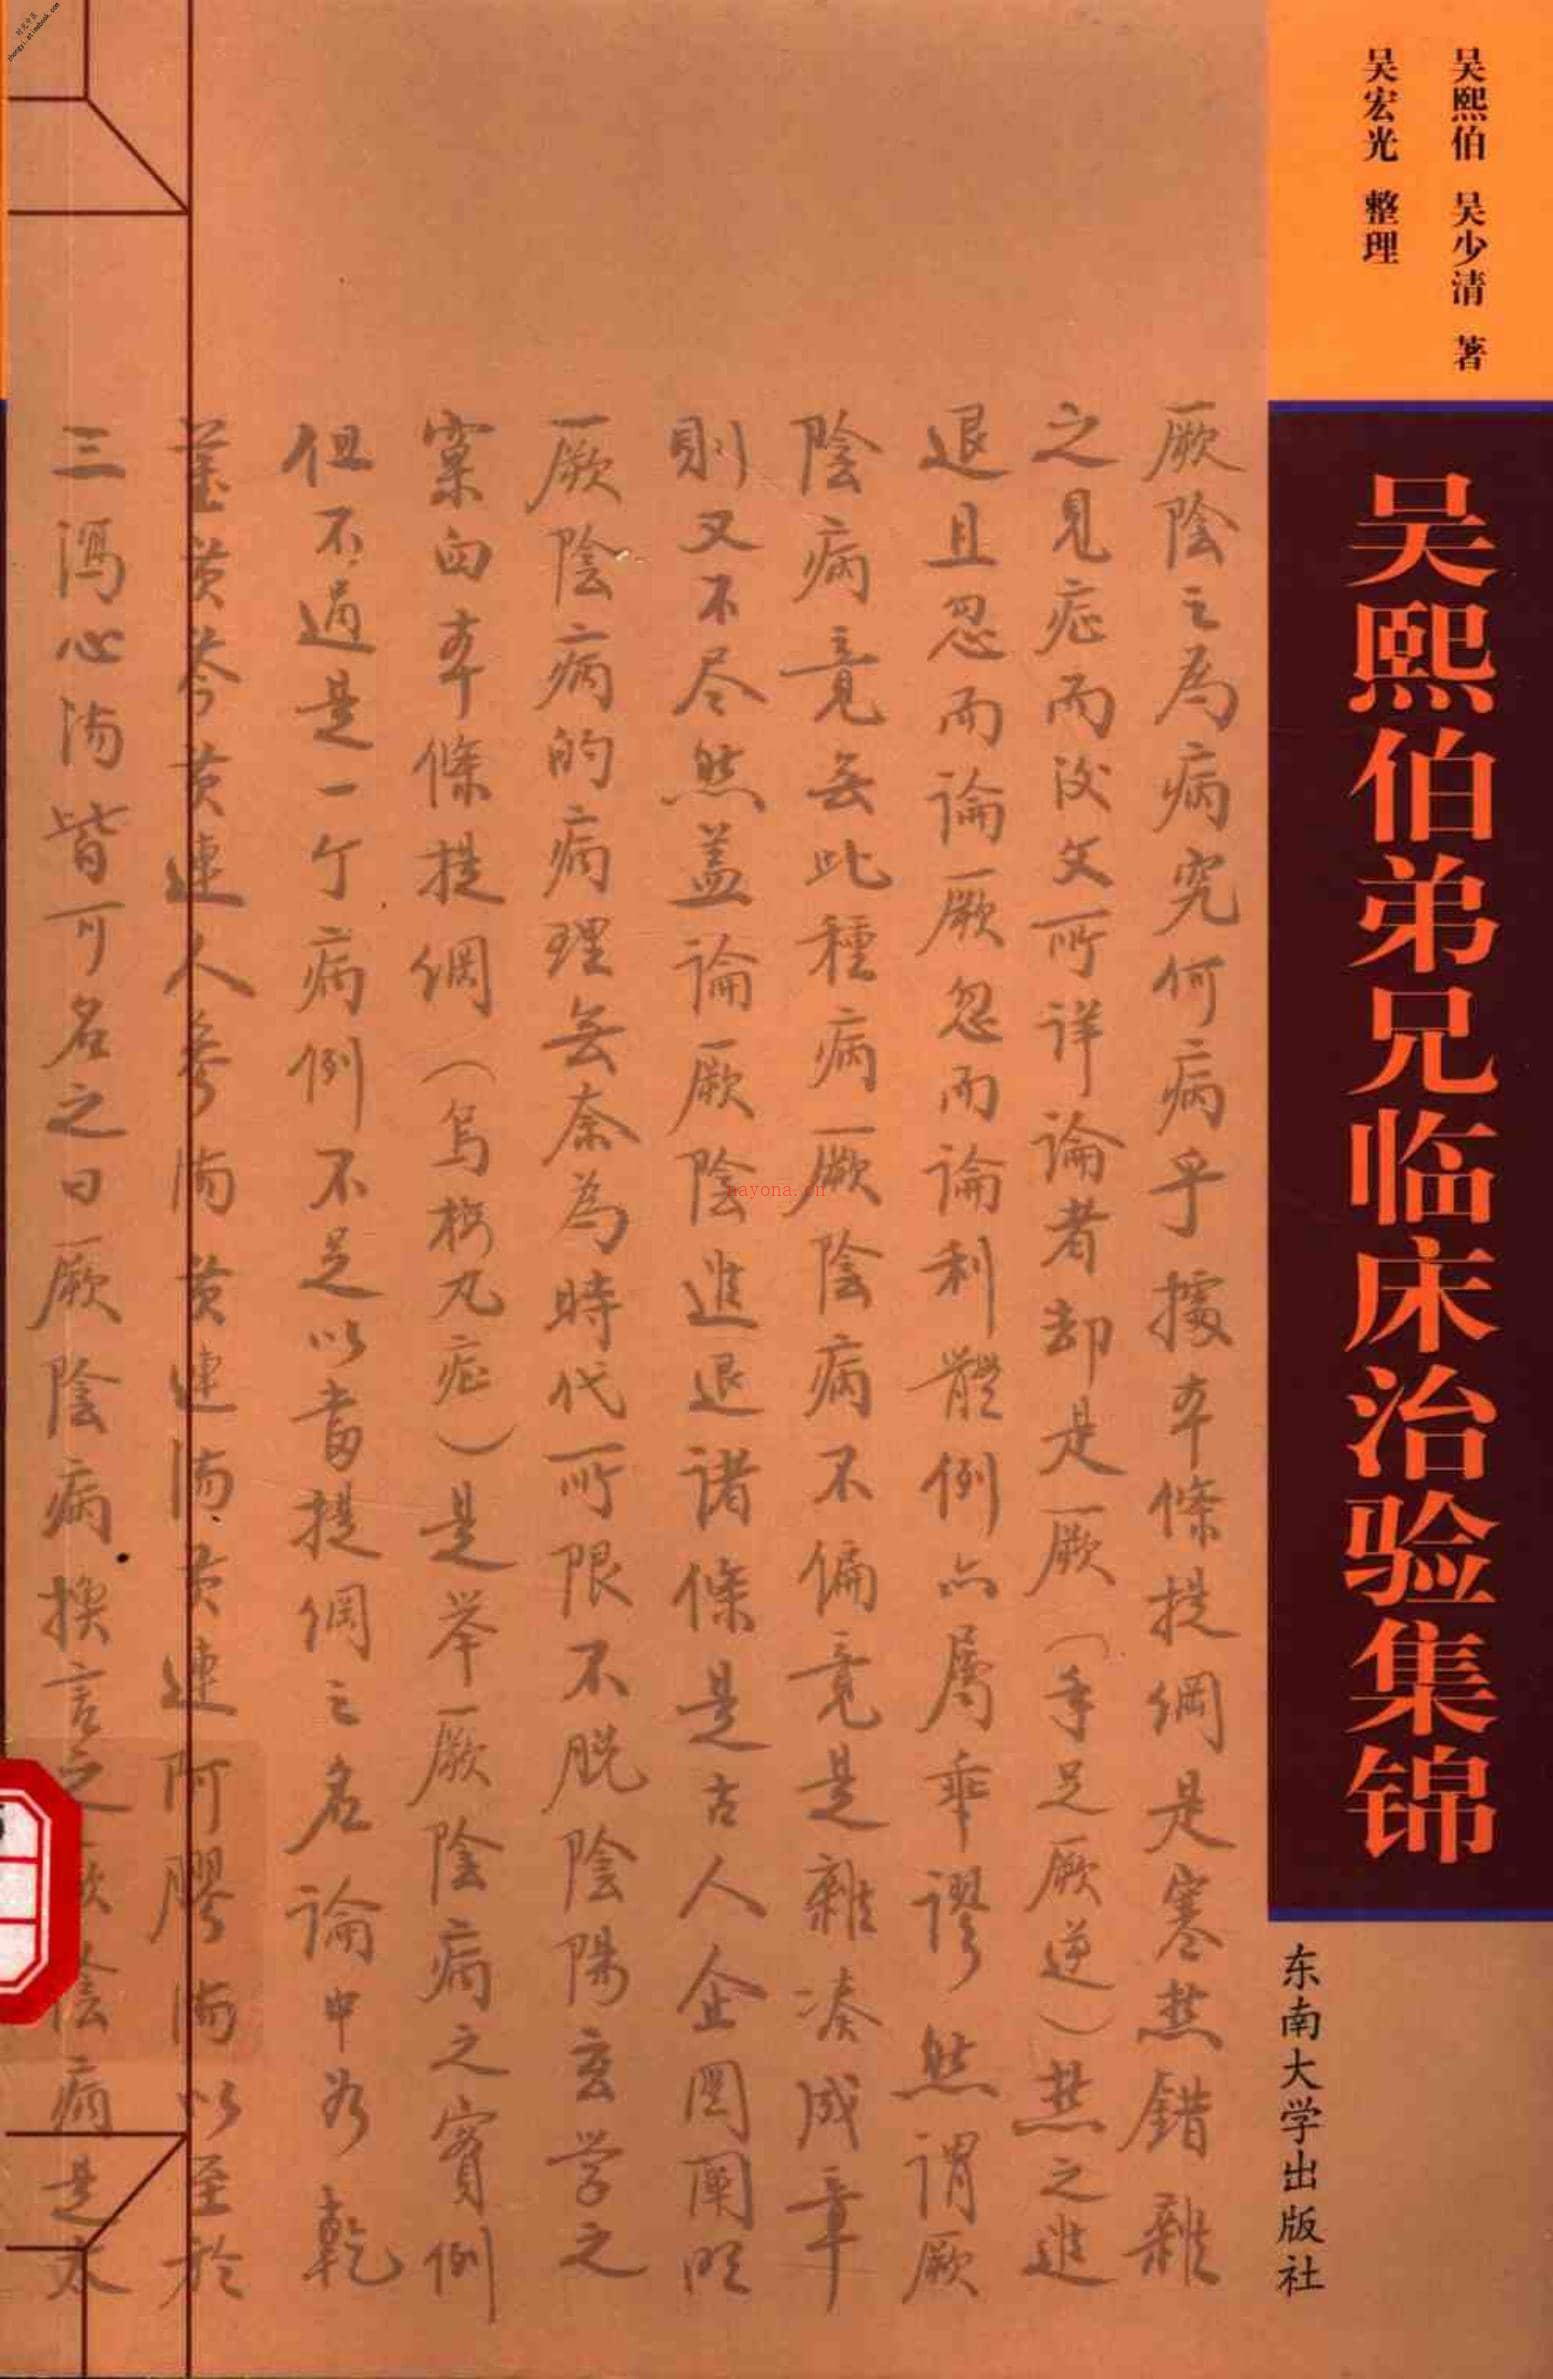 时光中医
zhongyi.atimebook.com
吴熙伯 吴少清 著
吴宏光 整理
吴熙伯弟兄临床治验集锦
东南大学出版社
厥陰之為病究何病乎據本條提綱是寒熱錯雜
之見症而後文所詳論者却是厥(手足厥逆)熱之進
退且忽而論厥忽而論利體例亦屬乖謬然謂厥
陰病竟無此種病厥陰病不偏竟是雜湊成章
則又不尽然蓋論厥陰進退諸條是古人企図闡明
厥陰病的病理無奈為時代所限不脱陰陽玄学之
窠臼本條提綱(烏梅丸症)是举厥陰病之實例
但不過是一个病例不足以當提綱之名論中如乾
薑黄芩黄連人参湯黄連湯黄連阿膠湯以至於
三瀉心湯皆可名之曰厥陰病換言之厥陰病是太
nayona.cn